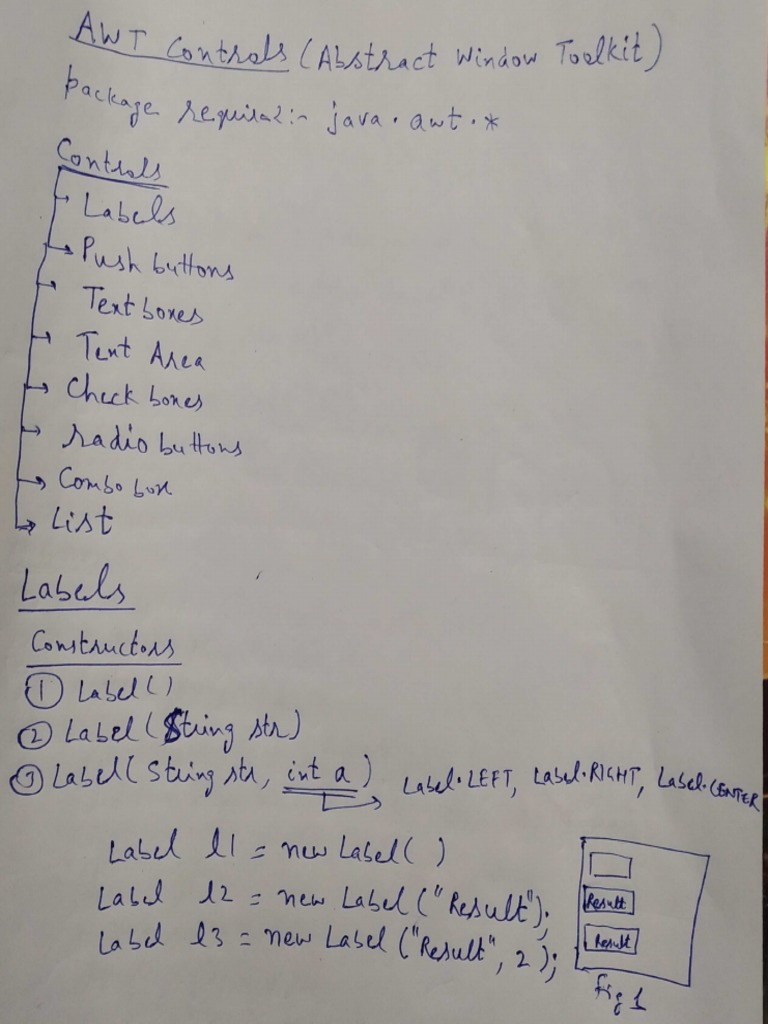 AWT Controls (Abstract Window Toolkit)
package required:- java.awt.*
Controls
Labels
Push buttons
Text boxes
Text Area
Check boxes
radio buttons
Combo box
List
Labels
Constructors
① Label()
② Label(String str)
③ Label(String str, int a) Label.LEFT, Label.RIGHT, Label.CENTER
Label l1 = new Label( )
Label l2 = new Label("Result");
Label l3 = new Label("Result", 2);
Result
Result
fig 1